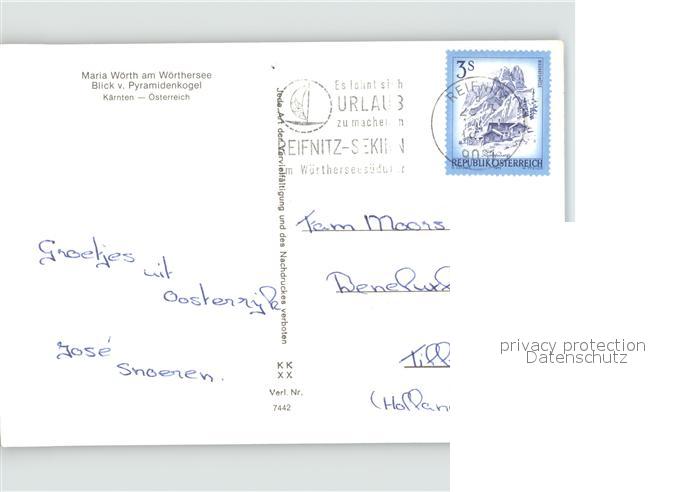 Maria Wörth am Wörthersee
Blick v. Pyramidenkogel
Kärnten — Österreich
Es lohnt sich
URLAUB
zu machen in
REIFNITZ-SEKIRN
am Wörtherseesüdufer
REIFNITZ
9081
3 S
REPUBLIK ÖSTERREICH
Jede Art der Vervielfältigung und des Nachdruckes verboten
Groetjes
uit
Oosterrijk
José
Snoeren.
Tam Moors
Benelux
Till
(Hollan
KK
XX
Verl. Nr.
7442
privacy protection
Datenschutz